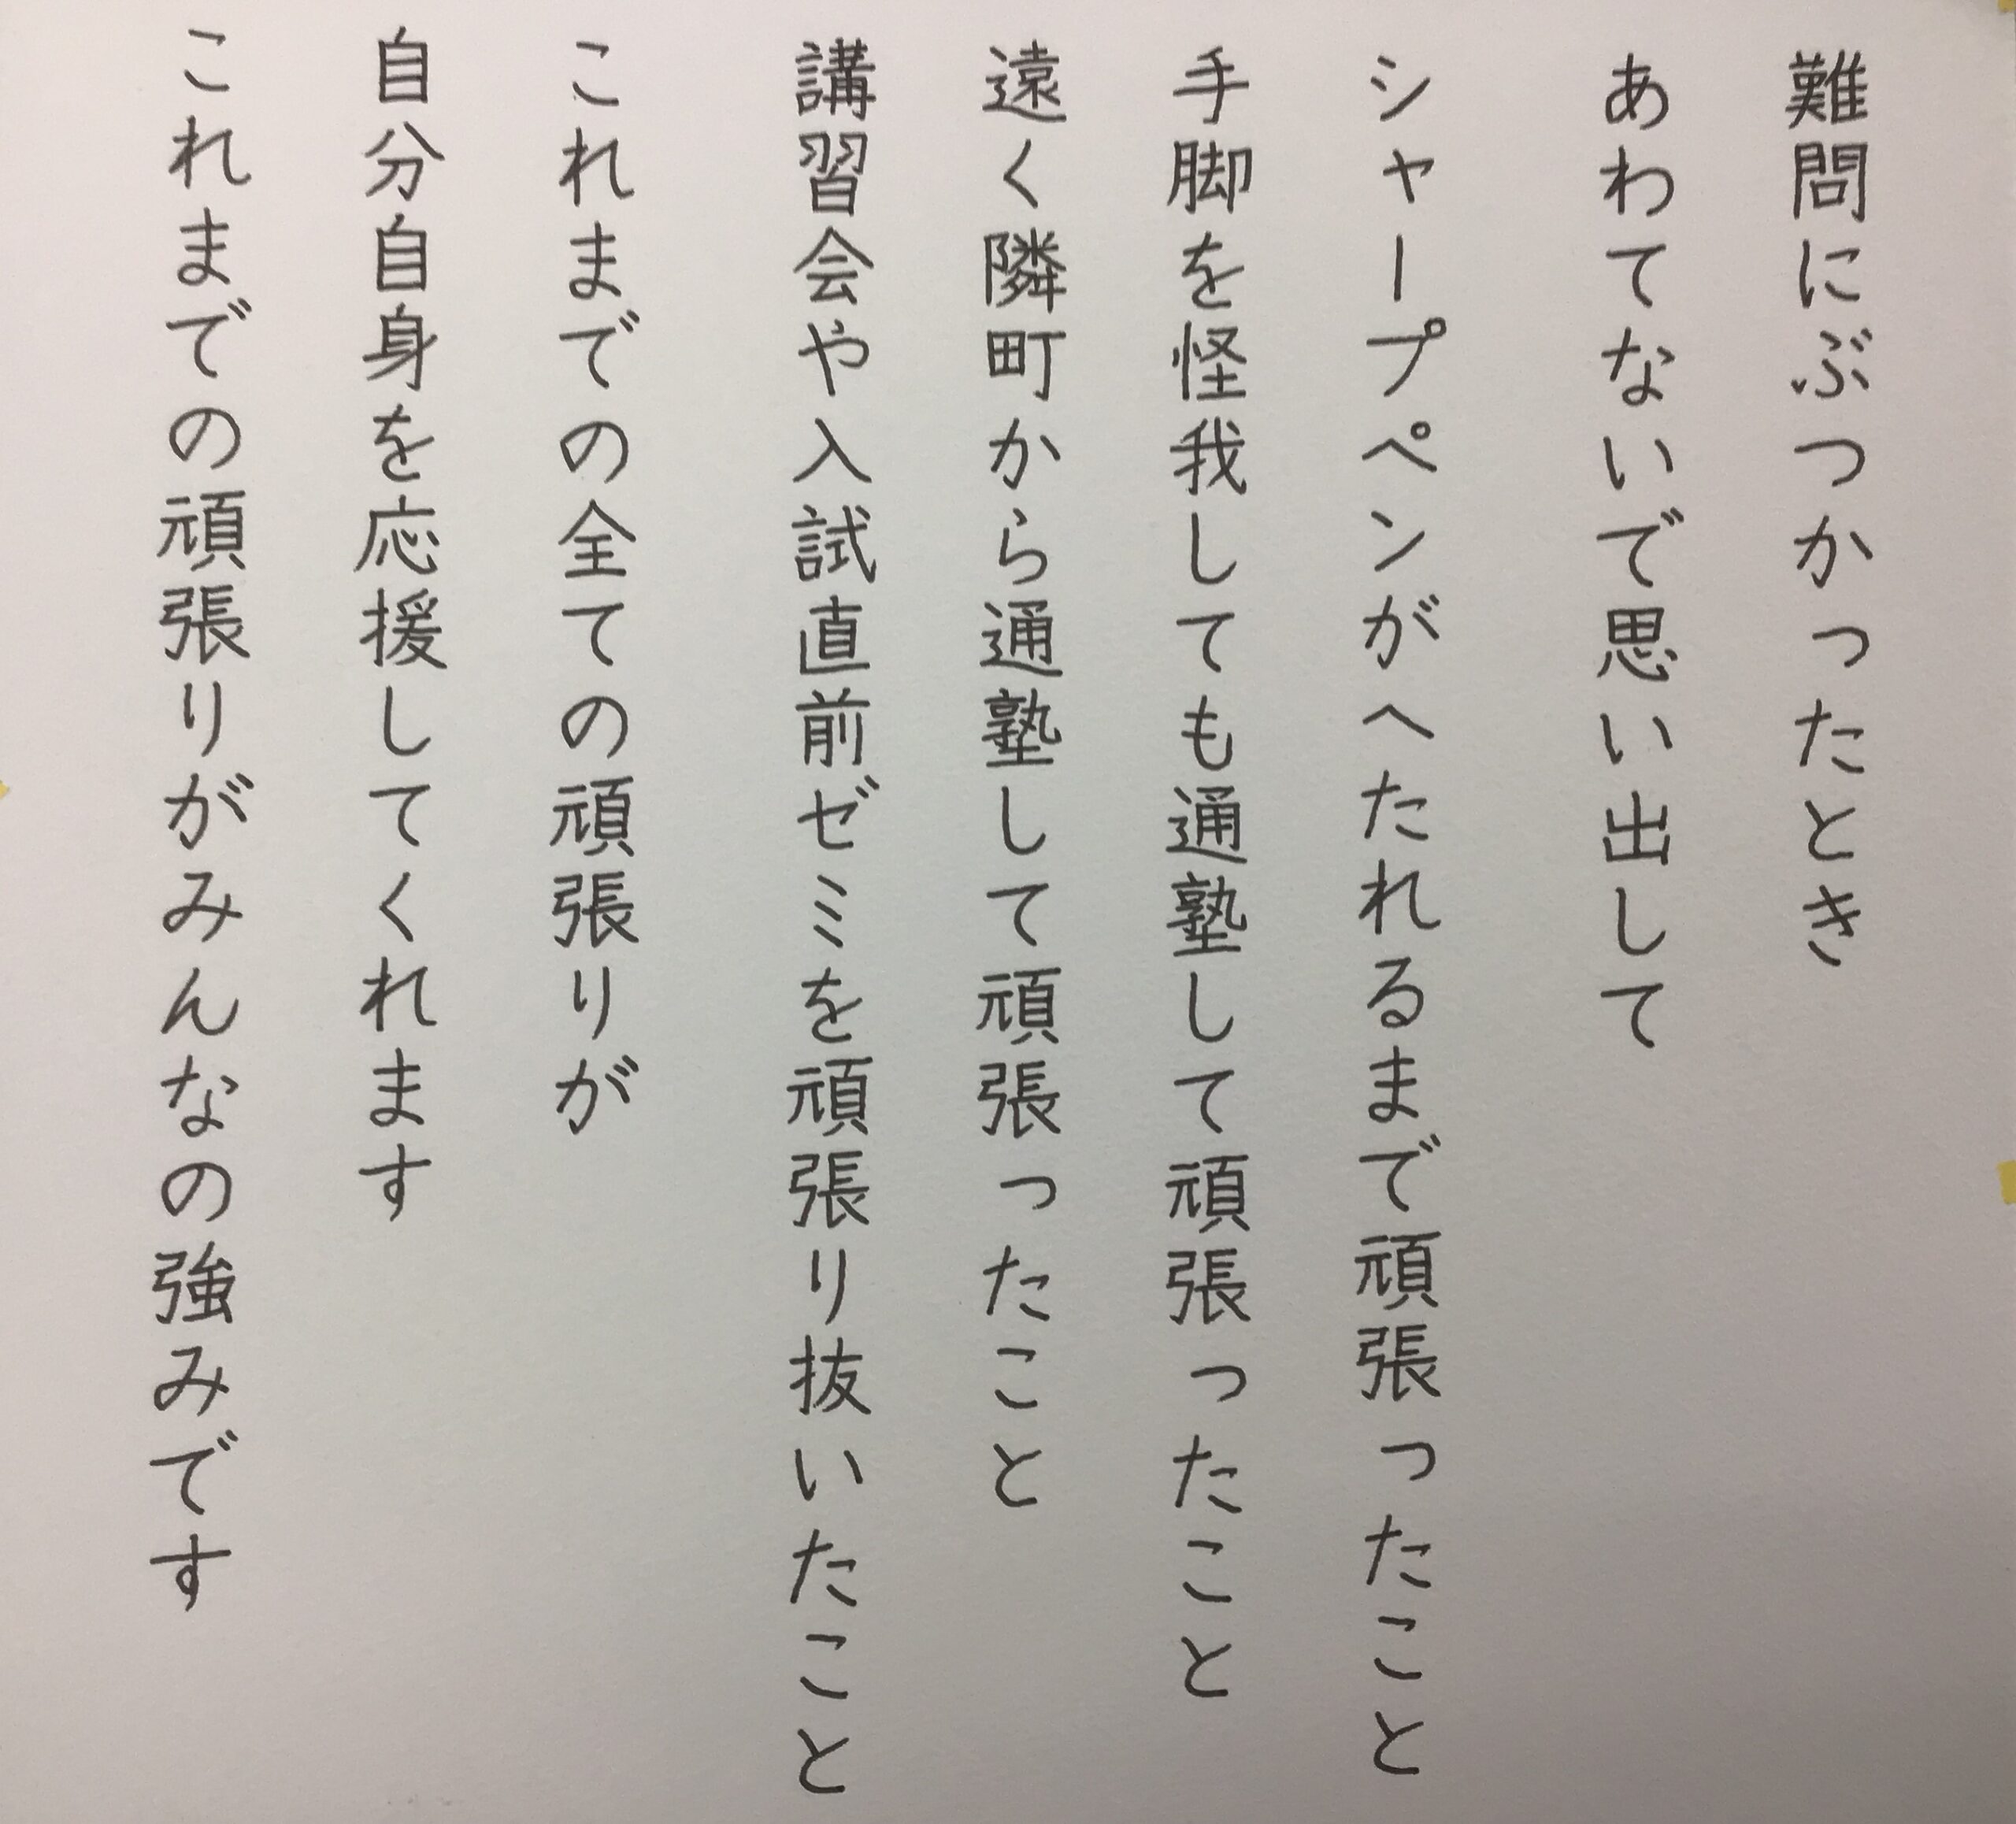 難問にぶつかったとき
あわてないで思い出して
シャープペンがへたれるまで頑張ったこと
手脚を怪我しても通塾して頑張ったこと
遠く隣町から通塾して頑張ったこと
講習会や入試直前ゼミを頑張り抜いたこと
これまでの全ての頑張りが
自分自身を応援してくれます
これまでの頑張りがみんなの強みです